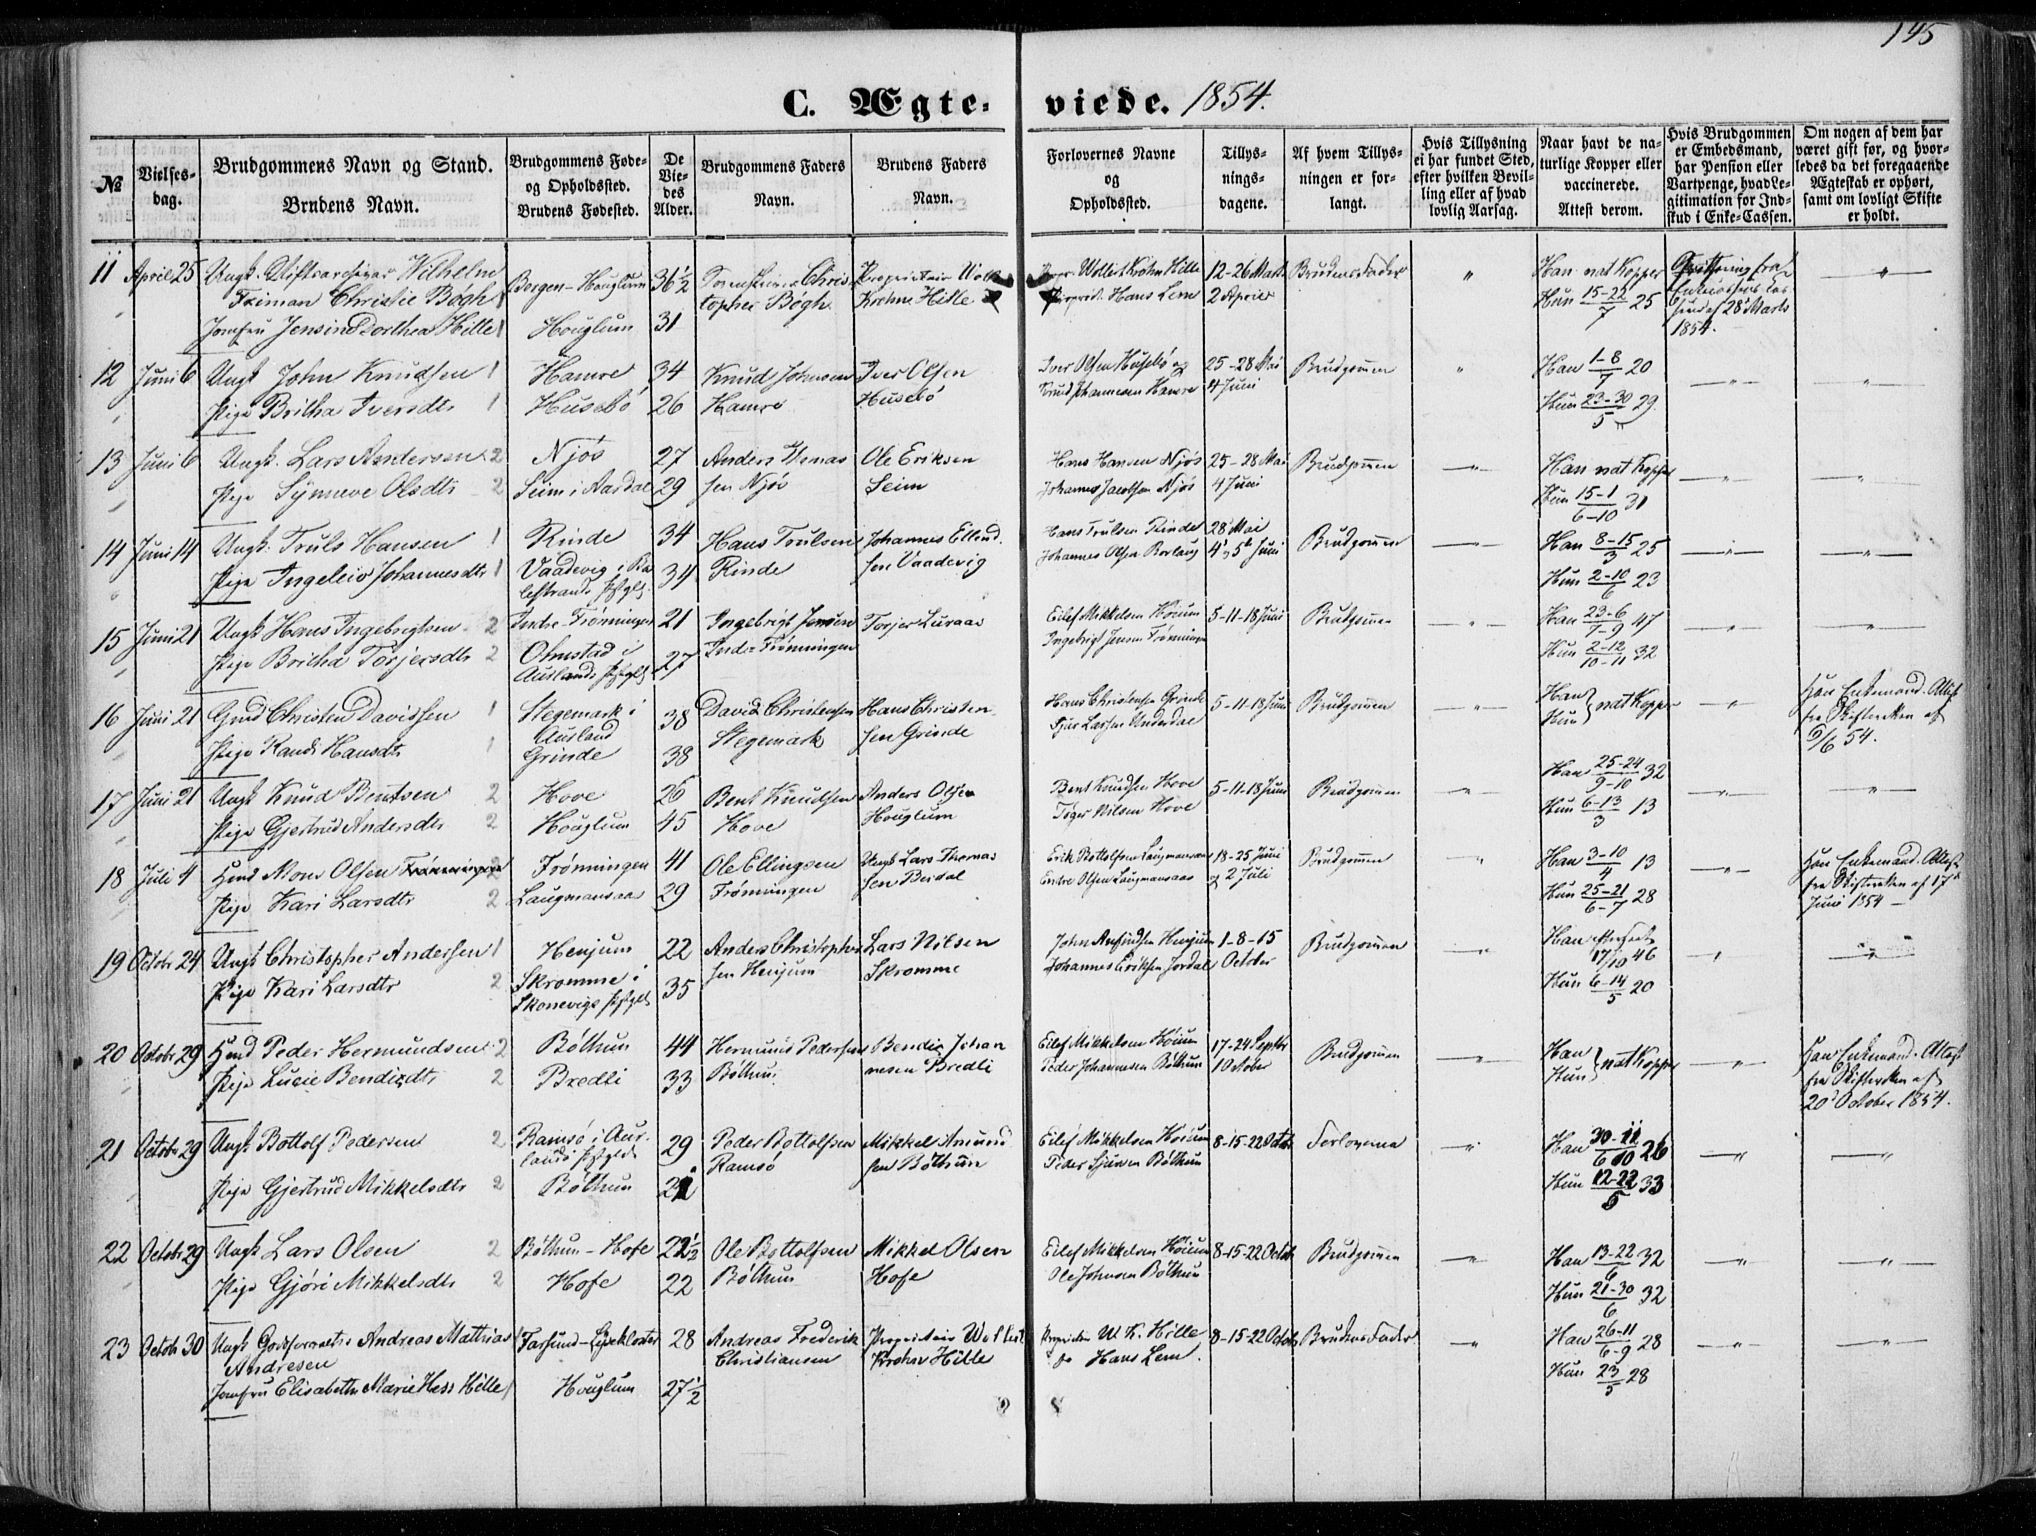 145
C. Ægteviede. 1854.
№
Vielsesdag.
Brudgommens Navn og Stand.
Brudens Navn.
Brudgommens Føde- og Opholdssted.
Brudens Fødested.
De Viedes Alder.
Brudgommens Faders Navn.
Brudens Faders Navn.
Forlovernes Navne og Opholdssted.
Tillysningsdagene.
Af hvem Tillysningen er forlangt.
Hvis Tillysning ei har fundet Sted, efter hvilken Bevilling eller af hvad lovlig Aarsag.
Naar havt de naturlige Kopper eller vaccinerede.
Attest derom.
Hvis Brudgommen er Embedsmand, har Pension eller Vartpenge, hvad Legitimation for Indskud i Enke-Cassen.
Om nogen af dem har været gift før, og hvorledes da det foregaaende Ægteskab er ophørt, samt om lovligt Skifte er holdt.
11 April 25 Ungk. Wilhelm Bergen-Houglum 36 1/2 Chris Proprietair Krohn Hille 12-26 Marts Brudens Fader " Han nat Kopper "
Friman Christie Bøgh 1 topher Bøgh. Krohn Hille Hans Lem 2 April Hun 15-22/7 25
Jomfru Jensine Dorthea Hille 1 Houglum 31 28 Marts
1854.
12 Juni 6 Ungk John Knudsen 1 Hamre 34 Knud Johnsen Iver Olsen Iver Olsen Husebó og 25-28 Mai Brudgommen " Han 1-8/7 20 " "
Pige Britha Iversdtr 1 Husebó 26 Hamre Husebó Knud Johannesen Hamre 4 Juni Hun 23-30/5 29
13 Juni 6 Ungk. Lars Andersen 2 Njøs 27 Anders Thomas Ole Eriksen Hans Hansen Njøs 25-28 Mai Brudgommen " Han nat Kopper " "
Pige Synneve Olsdtr 2 Seim i Aardal 29 sen Njøs Seim Johannes Jacobsen Njøs 4 Juni Hun 15-1/6-10 31
14 Juni 14 Ungk. Truls Hansen 1 Rinde 34 Hans Trulsen Johannes Ellend Hans Trulsen Rinde 28 Mai Brudgommen " Han 8-15/3 25 " "
Pige Ingeleiv Johannesdtr 1 Vaadevig i Ba 34 Rinde sen Vaadevig Johannes Olsen Borlaug 4, 5 Juni Hun 2-10/6 23
lestrands Pgld.
15 Juni 21 Ungk Hans Ingebrigtsen 2 Indre-Frønningen 21 Ingebrigt Jensen Torjer Luraas Eilef Mikkelsen Høium 5-11-18 Juni Brudgommen " Han 23-6/7-9 47 " "
Pige Britha Torjersdtr 2 Ohnstad i 27 Indre Frønningen Ingebrigt Jensen Frønningen Hun 2-12/10-11 32
Auslands Pgld
16 Juni 21 Christen Davidsen 1 Stegemark i 38 David Christensen Hans Christen Hans Christensen Grinde 5-11-18 Juni Brudgommen " Han Hun } nat Kopper " Han Enkemand. Attest
Pige Randi Hansdtr 1 Ausland Stegemark sen Grinde Sjur Larsen Underdal fra Skifteretten af
Grinde 38 9/6 54.
17 Juni 21 Ungk Knud Bentsen 2 Hove 26 Bent Knudsen Anders Olsen Bent Knudsen Hove 5-11-18 Juni Brudgommen " Han 25-24/9-10 32 " "
Pige Gjertrud Andersdtr 2 Houglum 45 Hove Houglum Tøger Nilsen Hove Hun 6-13/3 13
18 Juli 4 Mons Olsen Frønningen 2 Frønningen 41 Ole Ellingsen Ungk Lars Thomas Erik Bottolfsen Laugmansaas 18-25 Juni Brudgommen " Han 3-10/4 13 " Han Enkemand. Attest
Pige Kari Larsdtr 2 Laugmansaas 29 Frønningen sen Endre Olsen Laugmansaas og 2 Juli Hun 25-21/6-7 28 fra Skifteretten af 17
Juni 1854
19 Octobr 24 Ungk Christopher Andersen 1 Henjum 22 Anders Christopher Lars Nilsen John Anfindsen Henjum 1-8-15 Brudgommen " Han 17/10 46 " "
Pige Kari Larsdtr 2 Skromme i 35 sen Henjum Skromme Johannes Eriksen Jordal October Hun 6-14/5 20
Skonevigs Pgld
20 Octobr 29 Peder Hermundsen 2 Bóthun 44 Hermund Pedersen Bendix Johan Eilef Mikkelsen Høium 17-24 Septbr Brudgommen " Han Hun } nat Kopper " Han Enkemand. Attest
Pige Lucie Bendixdtr 2 Bredli 33 Bóthun nesen Bredli Peder Johannesen Bóthun 1 October fra Skifteretten af
20 October 1854.
21 Octobr 29 Ungk Bottolf Pedersen 2 Ramsó i Aur 29 Peder Bottolfsen Mikkel Amund Eilef Mikkelsen Høium 8-15-22 Octobr Forloverne " Han 30-11/6 10 26 " "
lands Pgld Ramsó sen Bóthun Peder Sjursen Bóthun
Pige Gjertrud Mikkelsdtr 2 Bóthun 21 Hun 12-22/5 33
22 Octobr 29 Ungk Lars Olsen 2 Bóthun-Hofe 22 1/2 Ole Bottolfsen Mikkel Olsen Eilef Mikkelsen Høium 8-15-22 Octobr Brudgommen " Han 13-22/6 32 " "
Pige Gjøri Mikkelsdtr 2 Hofe 22 Bóthun Hofe Ole Johnsen Bóthun Hun 21-30/6 32
23 Octobr 30 Ungk Andreas Mathias 1 Farsund-Lysekloster 28 Andreas Frederik Proprietair W. K. Hille 8-15-22 Octobr Brudens Fader " Han 26-11/6-9 28 " "
Andresen Christiansen Krohn Hille do Hans Lem.
Jomfru Elisabeth Marie Hess Hille 1 Houglum 27 1/2 Hun 23/5 28